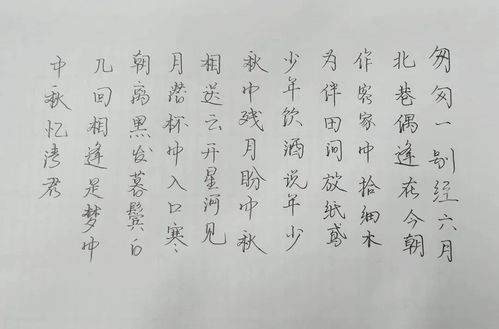 匆匆一别经六月
北巷偶逢在今朝
作客家中拾细木
为伴田间放纸鸢
少年饮酒说年少
秋中残月盼中秋
相送云开星河见
月落杯中入口寒
朝离黑发暮鬓白
几回相逢是梦中
中秋忆君